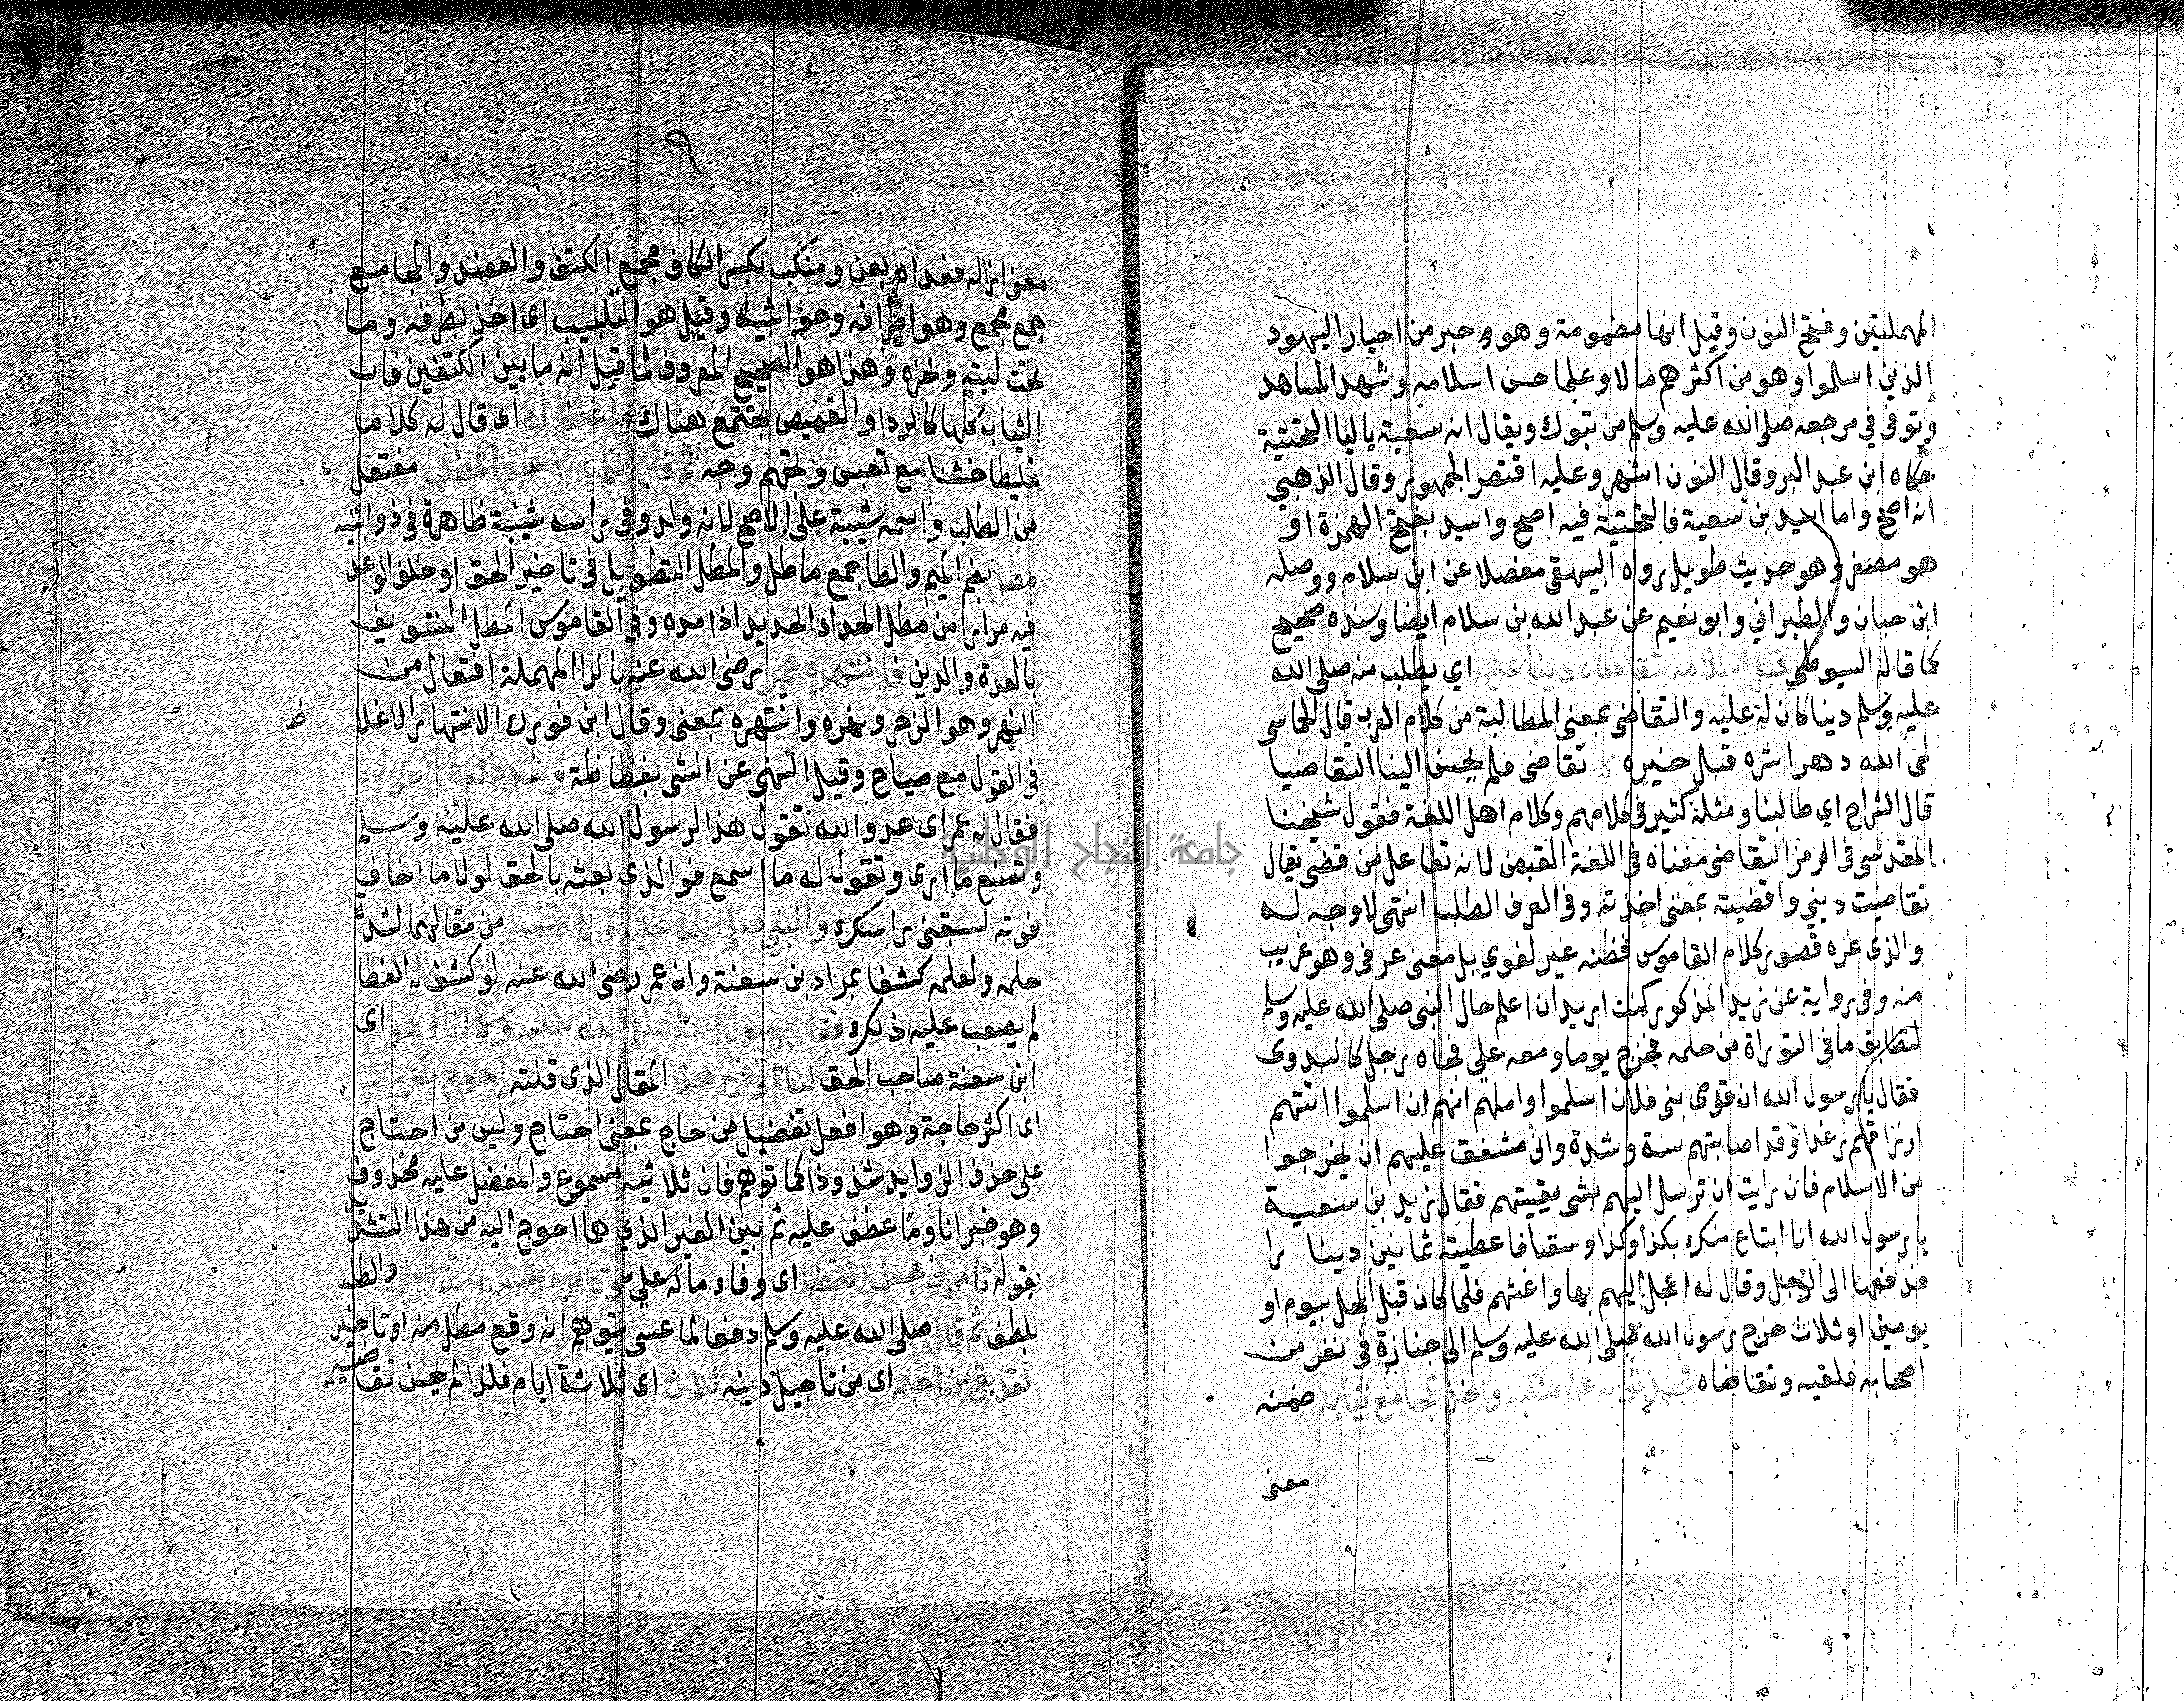 المهملتين وفتح النون وقيل انها مضمومة وهو حبر من احبار اليهود
الذين اسلموا وهو من اكثرهم مالا وعلما حسن اسلامه وشهد المشاهد
وتوفي في مرجعه صلى الله عليه وسلم من تبوك ويقال انه سعية باليا التحتية
حكاه ابن عبد البر وقال النون اشهر وعليه اقتصر الجمهور وقال الذهبي
انه اصح واما اسيد بن سعية فالتحتية فيه اصح واسيد بفتح الهمزة او
هو مصغر وهو حديث طويل رواه البيهقي مفصلا عن ابن سلام ووصله
ابن حبان والطبراني وابو نعيم عن عبد الله بن سلام ايضا وسنده صحيح
كما قاله السيوطي قبل اسلامه يتقاضاه دينا عليه اي يطلب منه صلى الله
عليه وسلم دينا كان له عليه والتقاضى بمعنى المطالبة من كلام العرب قال الحماسى
لحى الله دهرا شره قبل خيره تقاضى فلم يحسن الينا التقاضيا
قال الشراح اي طالبنا ومثله كثير في كلامهم وكلام اهل اللغة فقول شيخنا
المقدسى فى الرمز التقاضى معناه في اللغة القبض لانه تفاعل من قضى يقال
تقاضيت ديني واقضيته بمعنى اخذته وفى العرف الطلب انتهى لاوجه له
والذى غره قصور كلام القاموس فظنه غير لغوي بل معنى عرفى وهو غريب
منه وفى رواية عن زيد المذكور كنت اريد ان اعلم حال النبى صلى الله عليه وسلم
لتطابق ما في التوراة من حلمه فخرج يوما ومعه علي فجاه رجل كالبدوى
فقال يا رسول الله ان قوى بنى فلان اسلموا واملهم انهم ان اسلموا اتتهم
ارزاقهم رغدا وقد اصابتهم سنة وشدة وانى مشفق عليهم ان يخرجوا
من الاسلام فان رايت ان ترسل اليهم بشى يغيثهم فقال زيد بن سعية
يا رسول الله انا ابتاع منك بكذا وكذا وسقا فاعطيته ثمانين دينارا
فدفعها الى الرجل وقال له اعجل اليهم بها واغثهم فلما كان قبل المحل بيوم او
يومين او ثلاث خرج رسول الله صلى الله عليه وسلم الى جنازة في نفر من
اصحابه فلقيه وتقاضاه فجبذ ثوبه عن منكبه واخذ بمجامع ثيابه ضمنه
معنى
٩
معنى ازاله فعداه بعن ومنكب بكسر الكاف مجمع الكتف والعضد والمجامع
جمع مجمع وهو اطرافه وحواشيه وقيل هو التلبيب اى اخذ بطرفه وما
تحت لبته ونحره وهذا هو الصحيح المعروف لما قيل انه ما بين الكتفين فان
الثياب كلها كالردا والقميص يجتمع هناك واغلظ له اى قال له كلاما
غليظا خشنا مع تعبس وتجهم وجه ثم قال انكم يا بني عبد المطلب مفتعل
من الطلب واسمه شيبة على الاصح لانه ولد وفى راسه شيبة ظاهرة فى ذوابتيه
مطل بضم الميم والطا جمع ماطل والمطل التطويل فى تاخير الحق او خلف الوعد
فيه مرارا من مطل الحداد الحديد اذا مده وفي القاموس المطل التسويف
بالعدة والدين فانتهره عمر رضى الله عنه بالرا المهملة افتعال من
النهر وهو الزجر ونهره وانتهره بمعنى وقال ابن فورك الانتهار الاغلا
ظ
فى القول مع صياح وقيل النهى عن الشى بفظاظة وشدد له فى القول
فقال له عمر اى عدو الله تقول هذا لرسول الله صلى الله عليه وسلم
وتصنع ما ارى وتقول له ما اسمع فوالذى بعثه بالحق لولا ما اخاف
فوته لسبقنى راسك والنبي صلى الله عليه وسلم يتبسم من مقالهما لشدة
حلمه ولعلمه كشفا بمراد بن سعنة وان عمر رضى الله عنه لو كشف له الغطا
لم يصعب عليه ذلك فقال رسول الله صلى الله عليه وسلم انا وهو اى
ابن سعنة صاحب الحق كنا الى غير هذا المقال الذى قلته احوج منك يا عمر
اى اكثر حاجة وهو افعل تفضيل من حاج بمعنى احتاج وليس من احتاج
على حذف الزوايد شذوذا كما توهم فان ثلاثيه مسموع والمفضل عليه محذوف
وهو خبر انا وما عطف عليه ثم بين الغير الذي هما احوج اليه من هذا التشدد
بقوله تامرنى بحسن القضا اى وفاء ماله علي وتامره بحسن التقاضى والطلب
بلطف ثم قال صلى الله عليه وسلم دفعا لما عسى يتوهم انه وقع مطل منه او تاخير
لقد بقى من اجله اى من تاجيل دينه ثلاث اى ثلاثة ايام فلذا لم يحسن تقاضيه
جامعة النجاح الوطنية